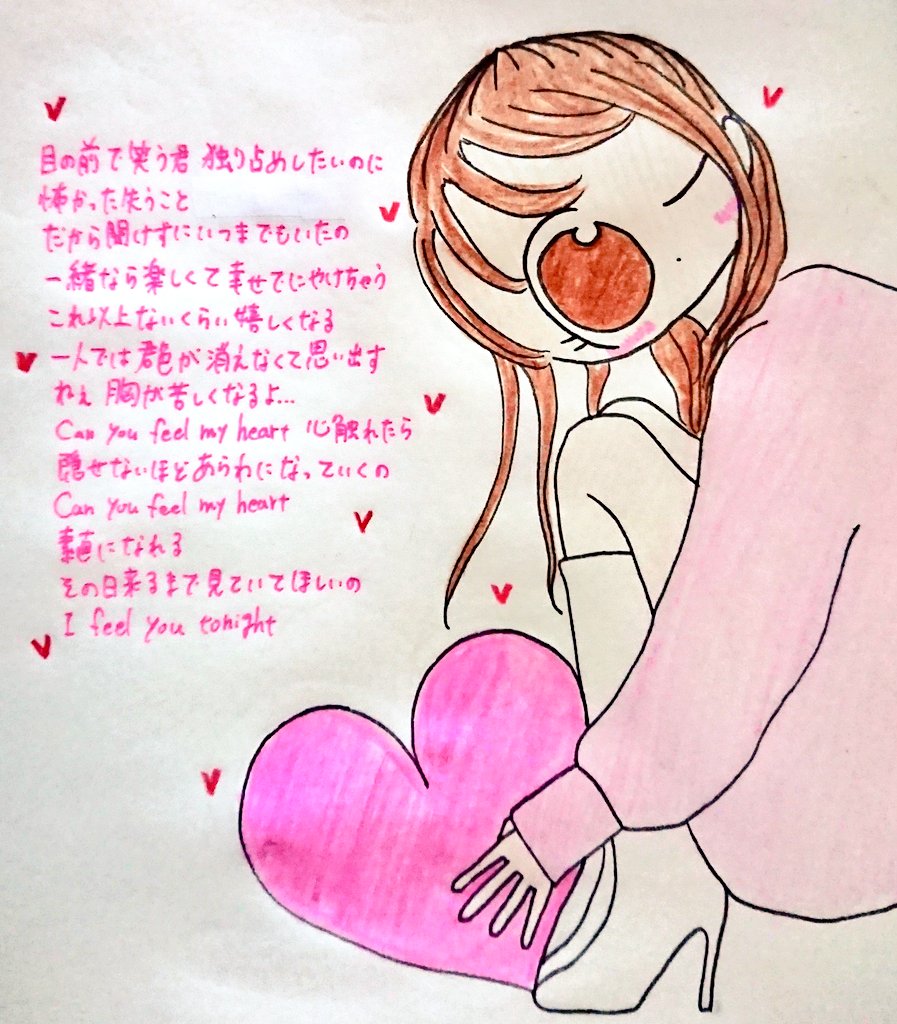 目の前で笑う君 独り占めしたいのに
怖かった失うこと
だから聞けずにいつまでもいたの
一緒なら楽しくて幸せでにやけちゃう
これ以上ないくらい嬉しくなる
一人では君色が消えなくて思い出す
ねぇ 胸が苦しくなるよ…
Can you feel my heart 心触れたら
隠せないほどあらわになっていくの
Can you feel my heart
素直になれる
その日来るまで見ていてほしいの
I feel you tonight